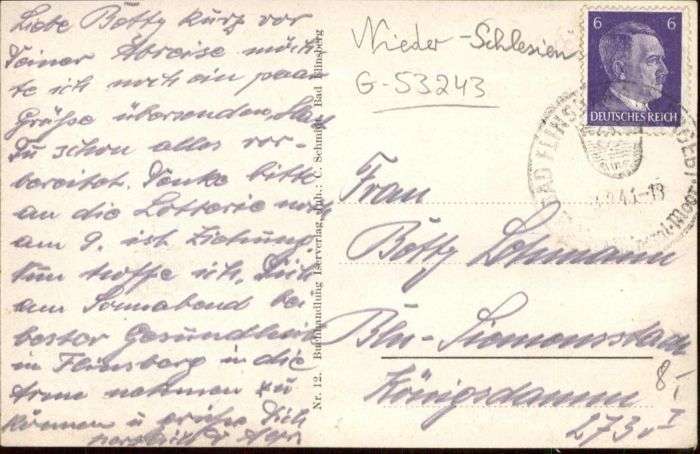 Liebe Betty kurz vor
Deiner Abreise möch-
te ich noch ein paar
Grüße übersenden. Hast
Du schon alles vor-
bereitet. Denke bitte
an die Lotterie noch
am 9. ist Ziehung
Nun hoffe ich, Dich
am Sonnabend bei
bester Gesundheit
in Flinsberg in die
Arme nehmen zu
können u grüße Dich
herzlichst
Nr. 12. Buchhandlung Iserverlag, Inh.: C. Schmidt, Bad Flinsberg
Nieder-Schlesien
G-53243
6 6
DEUTSCHES REICH
BAD FLINSBERG
Frau
Betty Lohmann
Bln-Siemensstadt
Königsdamm
273 I
8,-